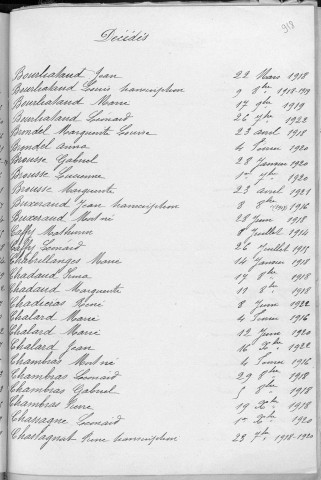 918
Décédés
Bourliataud Jean 22 Mars 1918
Bourliataud Louis transcription 9 8bre 1918-1919
Bourliataud Marie 17 9bre 1919
Bourliataud Léonard 26 7bre 1922
Brindel Marguerite Louise 23 avril 1918
Brindel Anna 4 Février 1920
Brousse Gabriel 28 Janvier 1920
Brousse Lucienne 1er 7bre 1920
Brousse Marguerite 23 avril 1921
Buxeraud Jean transcription 8 8bre 1916
Buxeraud Mort né 28 Juin 1918
Caffy Mathurin 8 Juillet 1914
Caffy Léonard 26 Juillet 1918
Chabrillanges Marie 14 Janvier 1918
Chadaud Irma 17 8bre 1918
Chadaud Marguerite 11 8bre 1918
Chadeiras René 8 Juin 1922
Chalard Marie 4 Février 1916
Chalard Marie 12 Juin 1920
Chalard Jean 16 Xbre 1922
Chambras Mort né 4 Février 1916
Chambras Léonard 29 8bre 1918
Chambras Gabriel 5 8bre 1918
Chambras Pierre 19 Xbre 1918
Chassagne Léonard 1er Xbre 1920
Chassagnat Pierre transcription 23 7bre 1918-1920